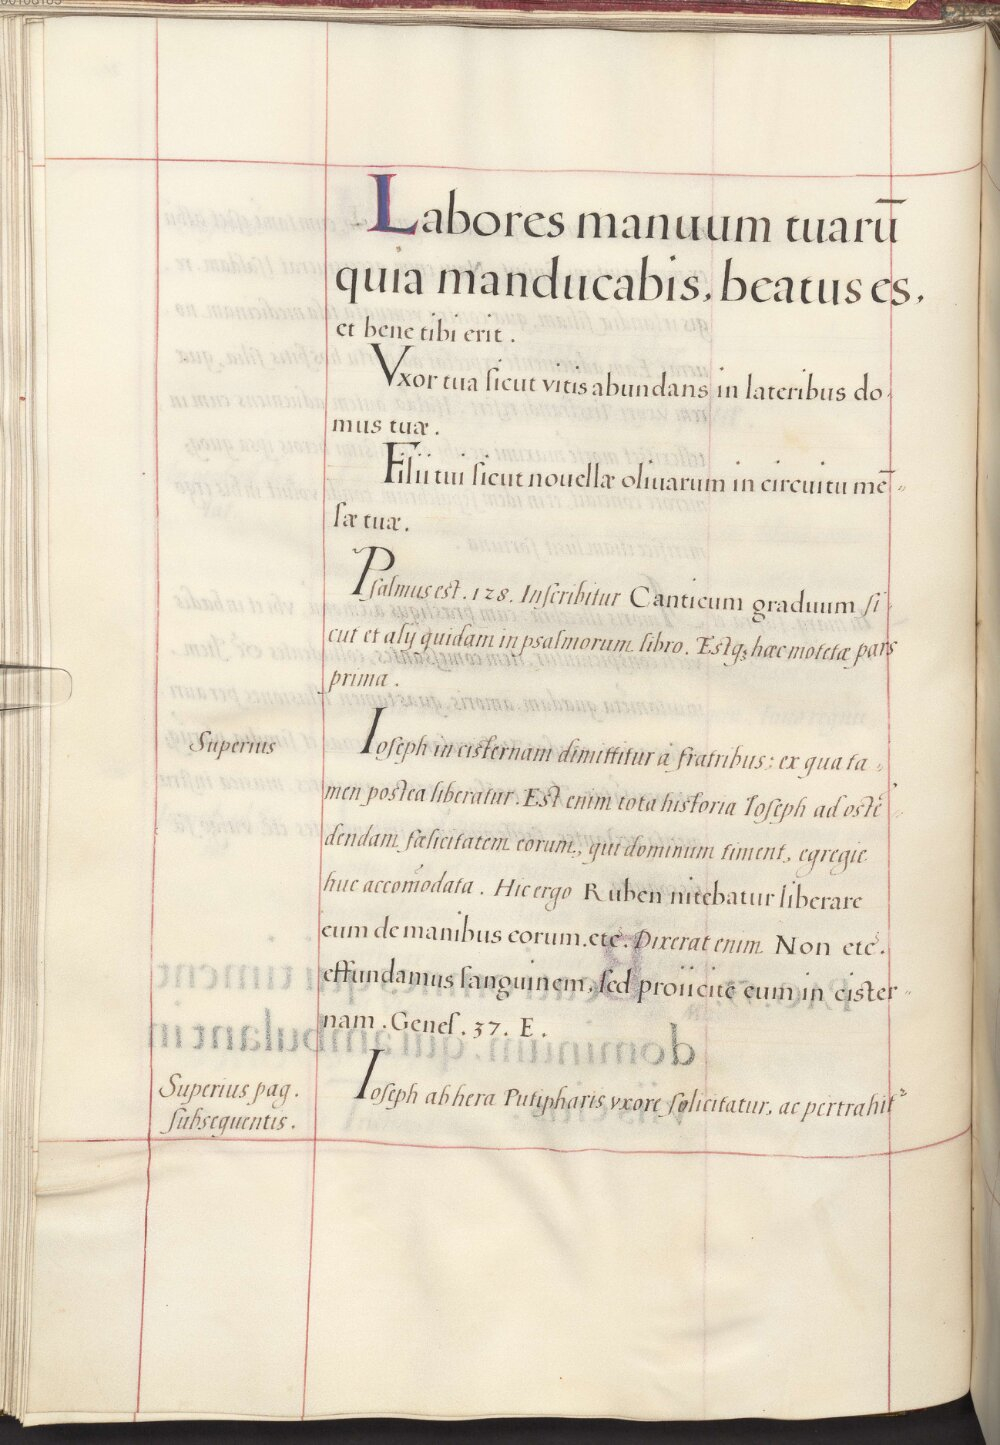 Labores manuum tuarū
quia manducabis, beatus es,
et bene tibi erit.
Vxor tua sicut vitis abundans in lateribus do-
mus tuæ.
Filii tui sicut nouellæ oliuarum in circuitu mē-
sæ tuæ.
Psalmus est. 128. Inscribitur Canticum graduum si-
cut et alÿ quidam in psalmorum libro. Estq; hæc motetæ pars
prima.
Superius
Ioseph in cisternam dimittitur à fratribus; ex qua ta-
men postea liberatur. Est enim tota historia Ioseph ad ostē-
dendam fælicitatem eorum, qui dominum timent, egregie
huc accom̄odata. Hic ergo Ruben nitebatur liberare
eum de manibus eorum. etc. Dixerat enim Non etc.
effundamus sanguinem, sed proiicite eum in cister-
nam. Genes. 37. E.
Superius pag.
subsequentis.
Ioseph ab hera Putipharis vxore solicitatur, ac pertrahit